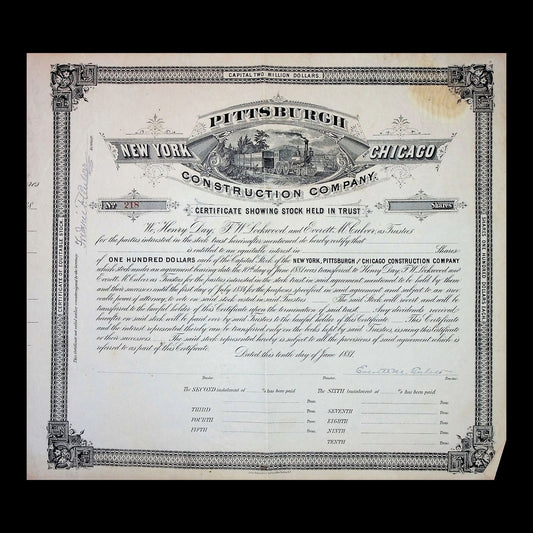 CAPITAL TWO MILLION DOLLARS.
PITTSBURGH
NEW YORK
CHICAGO
CONSTRUCTION COMPANY.
No 218
Shares
CERTIFICATE SHOWING STOCK HELD IN TRUST
We Henry Day, F. W. Lockwood and Everett M. Culver, as Trustees
for the parties interested in the stock trust hereinafter mentioned do hereby certify that
is entitled to an equitable interest in Shares
of ONE HUNDRED DOLLARS each of the Capital Stock of the NEW YORK, PITTSBURGH AND CHICAGO CONSTRUCTION COMPANY
which stock under an agreement bearing date the 10th day of June 1881 was transferred to Henry Day, F. W. Lockwood and
Everett M. Culver as Trustees for the parties interested in the stock trust in said agreement mentioned to be held by them
and their successors until the first day of July 1884 for the purposes specified in said agreement and subject to an irre-
vocable power of attorney, to vote on said stock vested in said Trustees. The said Stock will revert and will be
transferred to the lawful holder of this Certificate upon the termination of said trust. Any dividends received
hereafter on said stock will be paid over by said Trustees to the lawful holder of this Certificate. This Certificate
and the interest represented thereby can be transferred only on the books kept by said Trustees issuing this Certificate
or their successors. The said stock represented hereby is subject to all the provisions of said agreement which is
referred to as part of this Certificate.
Dated this tenth day of June 1881.
Trustee.
Trustee.
Trustee.
The SECOND instalment of % has been paid
Treas.
THIRD
Treas.
FOURTH
Treas.
FIFTH
Treas.
The SIXTH instalment of % has been paid
Treas.
SEVENTH
Treas.
EIGHTH
Treas.
NINTH
Treas.
TENTH
Treas.
CERTIFICATE OF EQUITABLE STOCK.
SHARES ONE HUNDRED DOLLARS EACH.